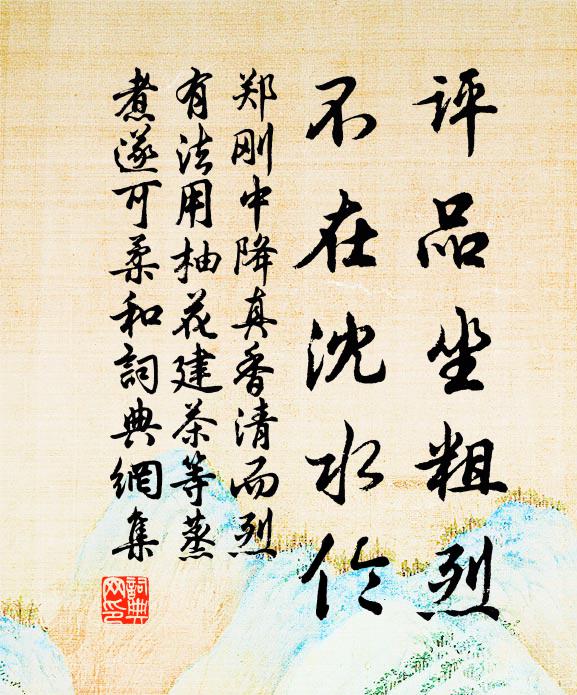 评品坐粗烈
不在沈水伦
郑刚中降真香清而烈
有法用柚花建茶等蒸
煮遂可柔和詞典網集
詞典
网印